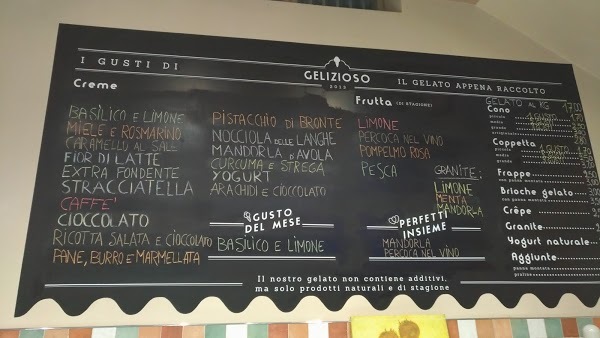 I GUSTI DI
GELIZIOSO
2013
IL GELATO APPENA RACCOLTO
Creme
BASILICO E LIMONE
MIELE E ROSMARINO
CARAMELLO AL SALE
FIOR DI LATTE
EXTRA FONDENTE
STRACCIATELLA
CAFFE'
CIOCCOLATO
RICOTTA SALATA E CIOCCOLATO
PANE, BURRO E MARMELLATA
PISTACCHIO DI BRONTE
NOCCIOLA DELLE LANGHE
MANDORLA D'AVOLA
CURCUMA E STREGA
YOGURT
ARACHIDI E CIOCCOLATO
GUSTO
DEL MESE
BASILICO E LIMONE
Frutta (DI STAGIONE)
LIMONE
PERCOCA NEL VINO
POMPELMO ROSA
PESCA
GRANITE:
LIMONE
MENTA
MANDORLA
PERFETTI
INSIEME
MANDORLA
PERCOCA NEL VINO
GELATO AL KG 17,00
Cono
piccolo
medio
grande
Coppetta
piccola
media
grande
Frappe
con panna montata
Brioche gelato
con panna montata
Crêpe
Granite
Yogurt naturale
Aggiunte
panna montata
praline
Il nostro gelato non contiene additivi,
ma solo prodotti naturali e di stagione